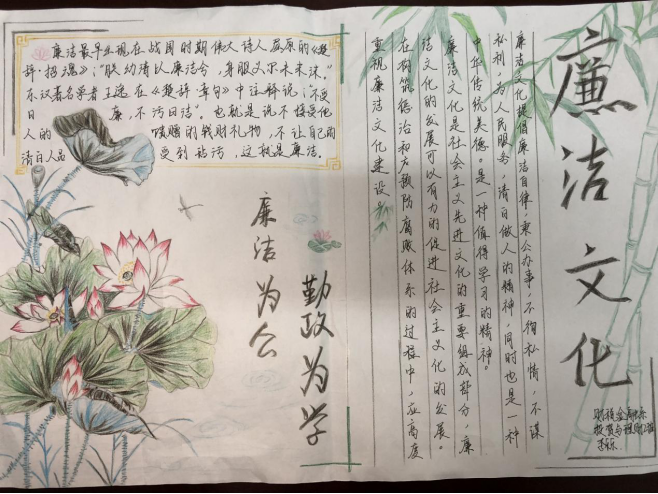 廉洁最早出现在战国时期伟大诗人屈原的《楚
辞·招魂》："朕幼清以廉洁兮，身服义尔未沫。"
东汉著名学者王逸在《楚辞·章句》中注释说："不受
曰廉，不污曰洁。也就是说不接受他
人的馈赠的钱财礼物，不让自己的
清白人品受到玷污，这就是廉洁。
廉洁为公
勤政为学
廉洁文化
廉洁文化提倡廉洁自律，秉公办事，不徇私情，不谋
私利，为人民服务，清白做人的精神，同时也是一种
中华传统美德。是一种值得学习的精神。
廉洁文化是社会主义先进文化的重要组成部分，廉
洁文化的发展可以有力的促进社会主义文化的发展。
在构筑惩治和预防腐败体系的过程中，应高度
重视廉洁文化建设。